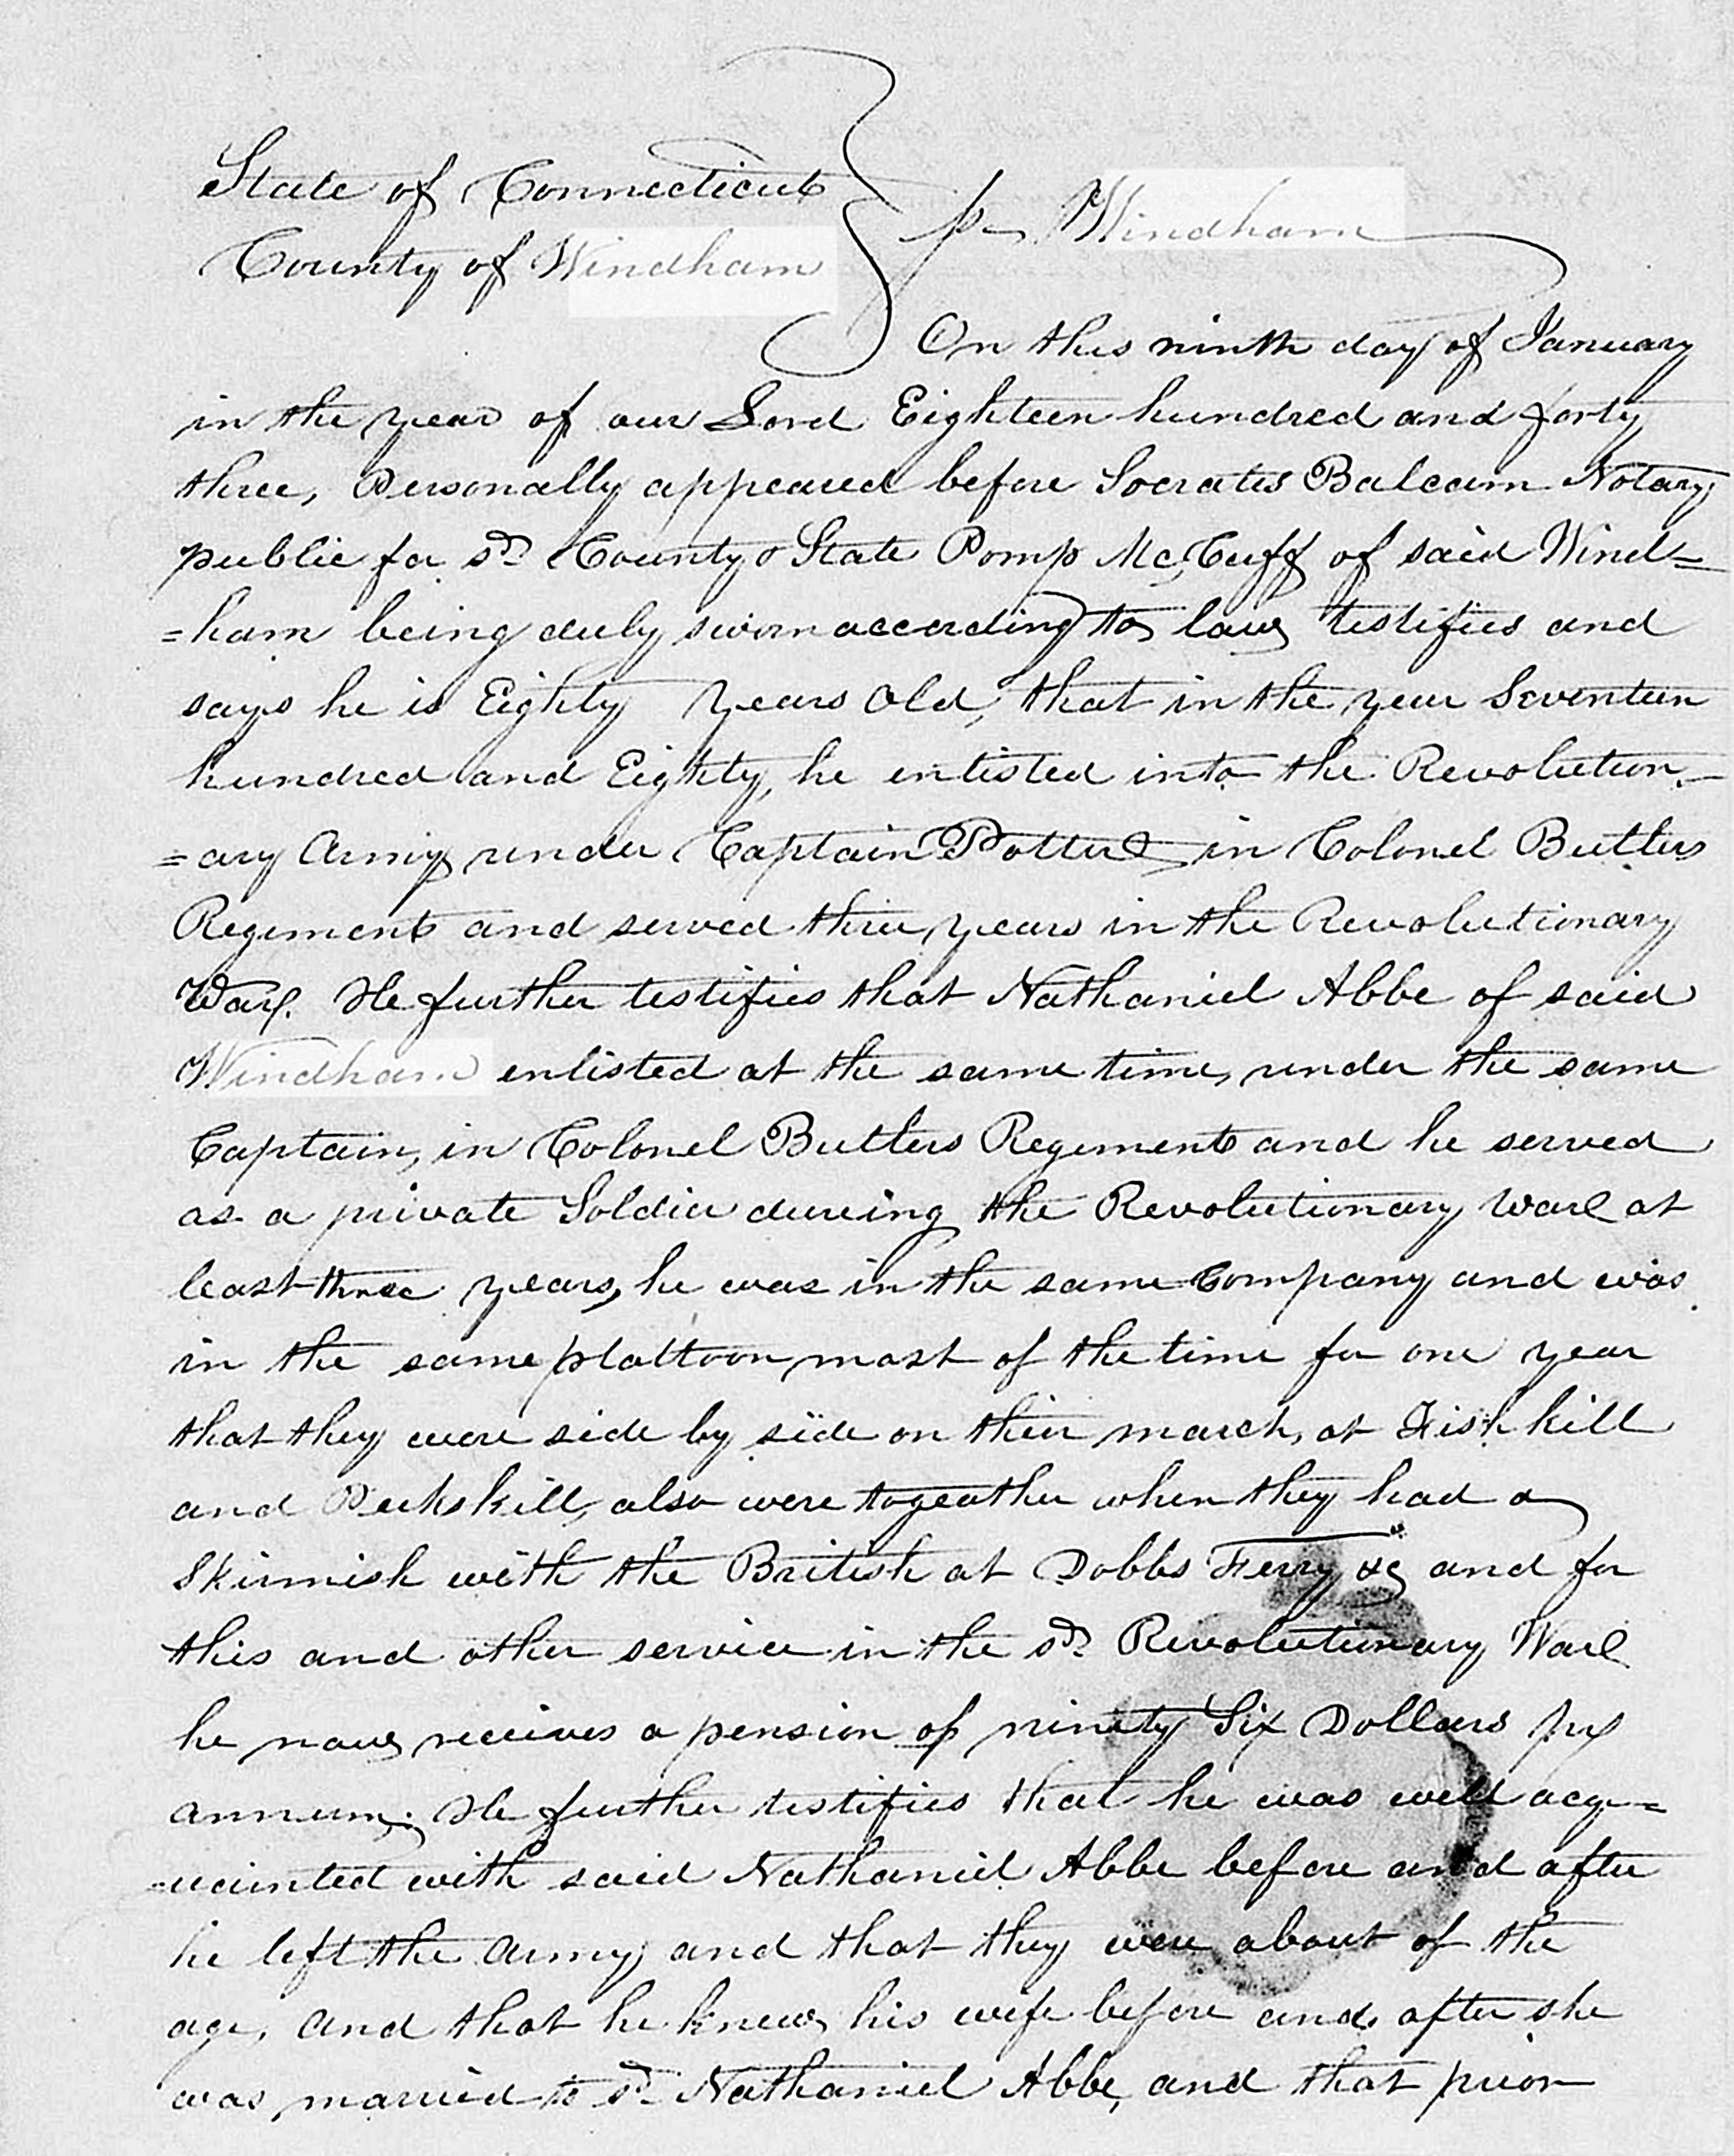 State of Connecticut
County of Windham } ss Windham
On this ninth day of January
in the year of our Lord Eighteen hundred and forty
three, Personally appeared before Socrates Balcam Notary
public for sd County & State Pomp Mc,Cuff of said Wind=
=ham being duly sworn according to law testifies and
says he is Eighty years old, that in the year Seventeen
hundred and Eighty, he enlisted into the Revolution_
=ary Army under Captain Potter in Colonel Butlers
Regement and served three years in the Revolutionary
War. He further testifies that Nathaniel Abbe of said
Windham enlisted at the same time, under the same
Captain, in Colonel Butlers Regement and he served
as a private Soldier dureing the Revolutionary War at
least three years, he was in the same Company and was
in the same plattoon most of the time for one year
that they were side by side on their march, at Fishkill
and Peekskill, also were togeather when they had a
Skirmish with the British at Dobbs Ferry &c and for
this and other service in the sd Revolutionary War
he now receives a pension of ninety Six Dollars pr
annum. He further testifies that he was well acq=
-uainted with said Nathaniel Abbe before and after
he left the Army and that they were about of the
age, and that he knew his wife before and after she
was married to sd Nathaniel Abbe, and that prior